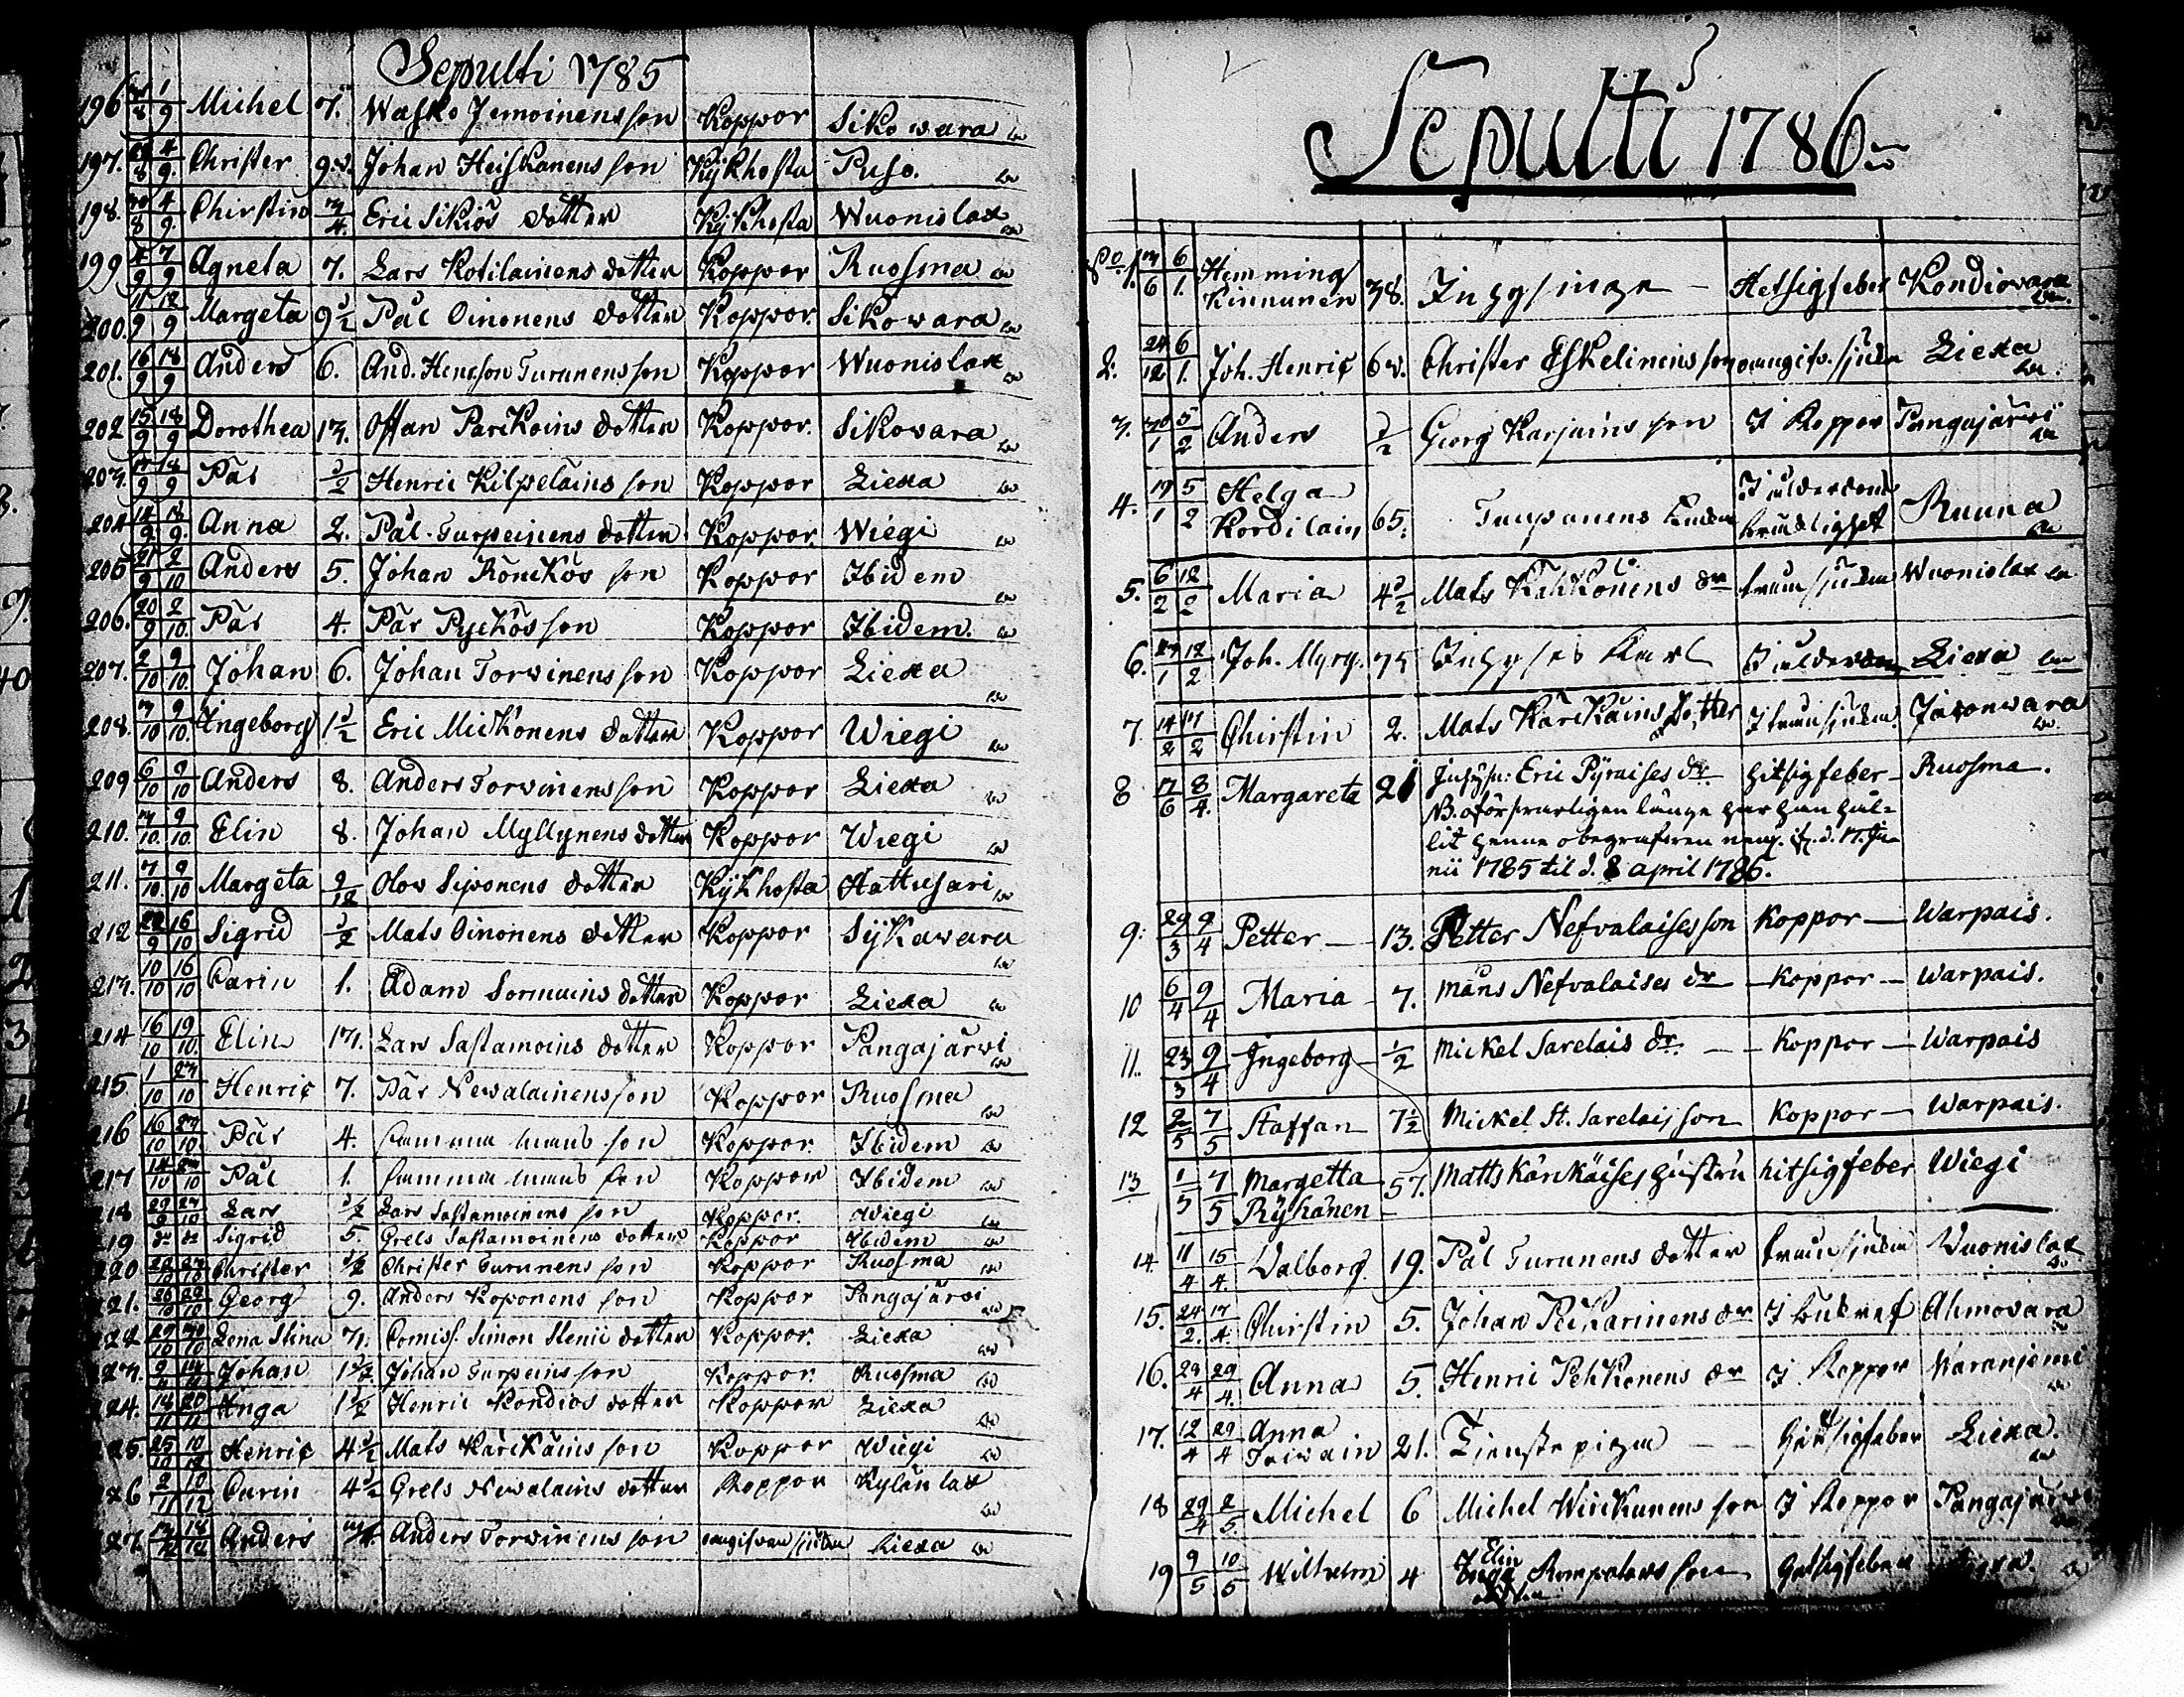 Sepulti 1785
196 1/9 Michel 7. Wasko Jemoinens son Koppor Sikowara
197. 4/9. Christer 9.v. Johan Heiskanens son Kijkhosta Puso.
198. 30/8 4/9. Chirstin 3/4. Eric Sikiös dotter Kijkhosta Wuonislax
199 4/9 7/9 Agneta 7. Lars Kotilainens dotter Koppor Ruosma
200. 11/9 18/9 Margeta 9 1/2 Pål Oinonens dotter Koppor. Sikowara
201. 16/9 18/9 Anders 6. And. Hensson Turunens son Koppor Wuonislax
202 15/9 18/9 Dorothea 13. Staffan Parikoins dotter Koppor. Sikowara
203. 17/9 18/9 Pär 1/2 Henric Kilpeläins son Koppor Liexa
204 14/9. 18/9. Anna 2. Pål Turpeinens dotter Koppor. Wiegi
205 21/9 2/10 Anders 5. Johan Rönikös son Koppor Ibidem
206. 20/9 2/10. Pär 4. Pär Pyckös son Koppor Ibidem.
207. 2/10 9/10. Johan 6. Johan Torwinens son Koppor Liexa
208. 3/10 9/10. Ingeborg 1 1/2 Eric Mickonens dotter Koppor Wiegi
209 6/10 9/10 Anders 8. Anders Torwinens son Koppor Liexa
210. 3/10. 9/10. Elin 8. Johan Myllynens dotter Koppor Wiegi
211. 7/10 9/10 Margeta 9/12 Olov Sivonens dotter Kijkhosta Hattusari
212 22/9 16/10 Sigrid 1/2 Mats Oinonens dotter Koppor Sijkawara
213. 10/10 16/10 Carin 1. Adam Sormuins dotter Koppor Liexa
214 16/10 19/10. Elin 13. Lars Sastamoins dotter Koppor Pangajärwi
215. 1/10 23/10 Henric 7. Pär Newalainens son Koppor Ruosma
216 16/10 23/10. Pär 4. samma mans son Koppor. Ibidem
217 14/10 23/10 Pål 1. samma mans son Koppor Ibidem
218 29/9 23/10 Lars 1/2 Lars Sastamoinens son Koppor. Wiegi
219 do do Sigrid 5. Grels Sastamoinens dotter Koppor Ibidem
220 Christer 1/2 Christer Turunens son Koppor Ruosma
221. Georg 9. Anders Koponens son Koppor Pangajärwi
222 Lena Stina Comiss. Simon Stenii dotter Koppor. Liexa
223. Johan 1 1/2 Johan Turpeins son Koppor. Ruosma
224. Inga 1 1/2 Henric Kondios dotter Koppor Liexa
225. Henric 4 1/2 Mats Kärckäins son Koppor Wiegi
226 2/11 10/12 Carin 4 1/2 Grels Newalains dotter Koppor Kylänlax
227. Anders Anders Torwinens son oangifven sjukdom Liexa
Sepulti 1786
No 1. 3/6 6/1. Hemming Kinnunen 38. Inhysinge Hetsigfeber Kondiowara
2. 24/12 6/1. Joh. Henric 6 v. Christer Eskelinens son oangifv. sjukd Liexa
3. 30/1 5/2 Anders 1/2 Georg Karjains son I Koppor Pangajärwi
4. 19/1 5/2 Helga Kordilain 65. Taupanens Enka I ålderdoms bräcklighet Ruuna
5. 6/2 12/2 Maria 4 1/2 Mats Kähkönens dr bränsjukan Wuonislax
6. 12/2 Joh. Myry. 75 Inhyses Karl I ålderdom Liexa
7. 14/2 17/2 Chirstin 2. Mats Kärckäins dotter I bränsjukan Jäxonwara
8 17/6 8/4. Margareta 21 Inhys: Eric Pÿraises dr hitsigfeber Ruosma.
NB. oförsvarligen länge har han hål=
lit henne obegrafven neml. fr. d. 17. Ju-
nii 1785 til d. 8 april 1786.
9: 29/3 9/4 Petter 13. Petter Nefvalaises son Koppor Warpais.
10 6/4 9/4 Maria 7. måns Nefvalaises dr Koppor Warpais.
11. 23/3 9/4 Ingeborg 1/2 Mickel Sarelais dr. Koppor Warpais
12 2/5 7/5 Staffan 7 1/2 Mickel St. Sarelais son Koppor Warpais.
13 1/5 7/5 Margetta Ryhänen 57. Matts Kärckäises hustru hitsigfeber Wiegi
14. 11/4 15/4. Walborg 19. Pål Turunens dotter bränsjukan Wuonislax
15. 24/2. 17/4. Chirstin 5. Johan Peikarinens dr I bukref Ahmovara
16. 24/4 29/4. Anna 5. Henric Pehkonens dr I Koppor Waranjemi
17. 12/4 29/4 Anna Taiwain 21. Tienstepiga Hetsigfeber Liexa.
18 29/4 2/5. Michel 6 Michel Wirikunens son I Koppor Pangajärwi
19 9/5 10/5 Wilhelm 4 Elin Rumpolas son Hetsigfeber